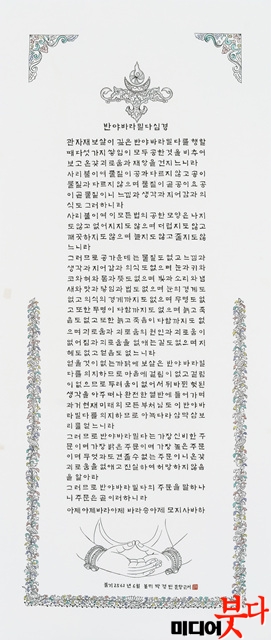 반야바라밀다심경
관자재보살이 깊은 반야바라밀다를 행할
때 다섯 가지 쌓임이 모두 공한 것을 비추어
보고 온갖 괴로움과 재앙을 건지느니라
사리불이여 물질이 공과 다르지 않고 공이
물질과 다르지 않으며 물질이 곧 공이요 공
이 곧 물질이니 느낌과 생각과 지어감과 의
식도 그러하니라
사리불이여 이 모든 법의 공한 모양은 나지
도 않고 없어지지도 않으며 더럽지도 않고
깨끗하지도 않으며 늘지도 않고 줄지도 않
느니라
그러므로 공 가운데는 물질도 없고 느낌과
생각과 지어감과 의식도 없으며 눈과 귀와
코와 혀와 몸과 뜻도 없으며 빛과 소리와 냄
새와 맛과 닿임과 법도 없으며 눈의 경계도
없고 의식의 경계까지도 없으며 무명도 없
고 또한 무명이 다함까지도 없으며 늙고 죽
음도 없고 또한 늙고 죽음이 다함까지도 없
으며 괴로움과 괴로움의 원인과 괴로움이
없어짐과 괴로움을 없애는 길도 없으며 지
혜도 없고 얻음도 없느니라
얻을 것이 없는 까닭에 보살은 반야바라밀
다를 의지하므로 마음에 걸림이 없고 걸림
이 없으므로 두려움이 없어서 뒤바뀐 헛된
생각을 아주 떠나 완전한 열반에 들어가며
과거 현재 미래의 모든 부처님도 이 반야바
라밀다를 의지하므로 아뇩다라삼먁삼보
리를 얻느니라
그러므로 반야바라밀다는 가장 신비한 주
문이며 가장 밝은 주문이며 가장 높은 주문
이며 무엇과도 견줄 수 없는 주문이니 온갖
괴로움을 없애고 진실하여 허망하지 않음
을 알아라
그러므로 반야바라밀다의 주문을 말하나
니 주문은 곧 이러하니라
아제아제 바라아제 바라승아제 모지사바하
불기 2562년 6월
미디어붓다